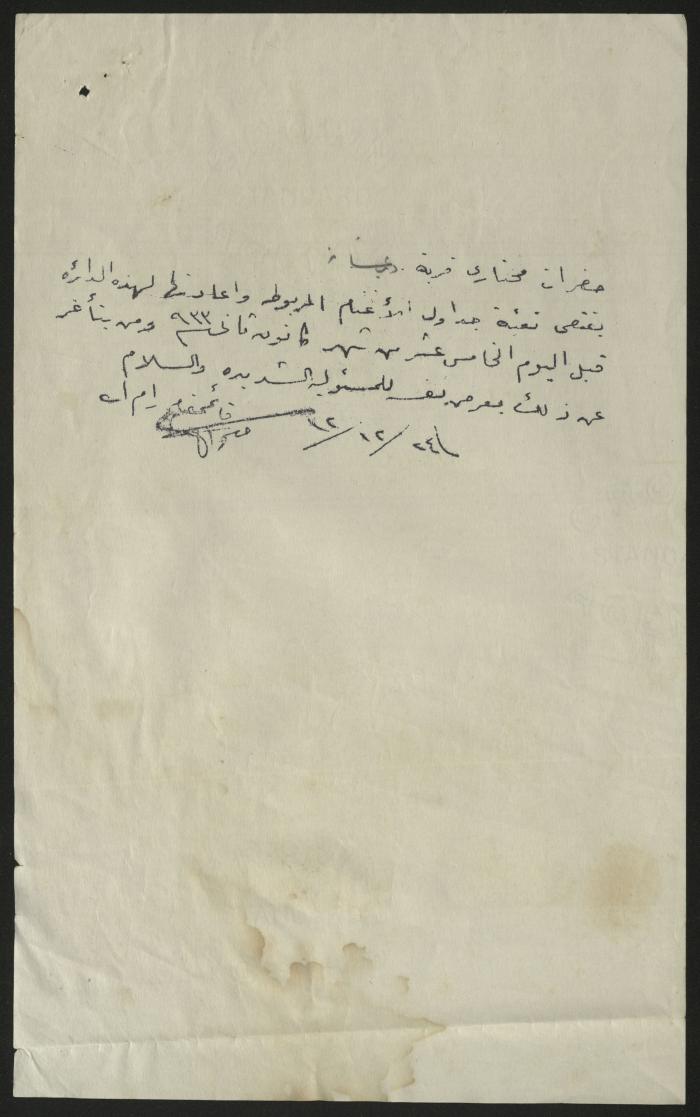 حضرات مختاري قرية
يقتضى تعبئة جداول الأغنام المربوطه واعادتها لهذه الدائره
قبل اليوم الخامس عشر من شهر كانون ثاني ٩٣٣ ومن يتأخر
عن ذلك يعرض نفسه للمسئولية الشديده والسلام
٢٤/١٢/٣٢ قائمقام رام الله